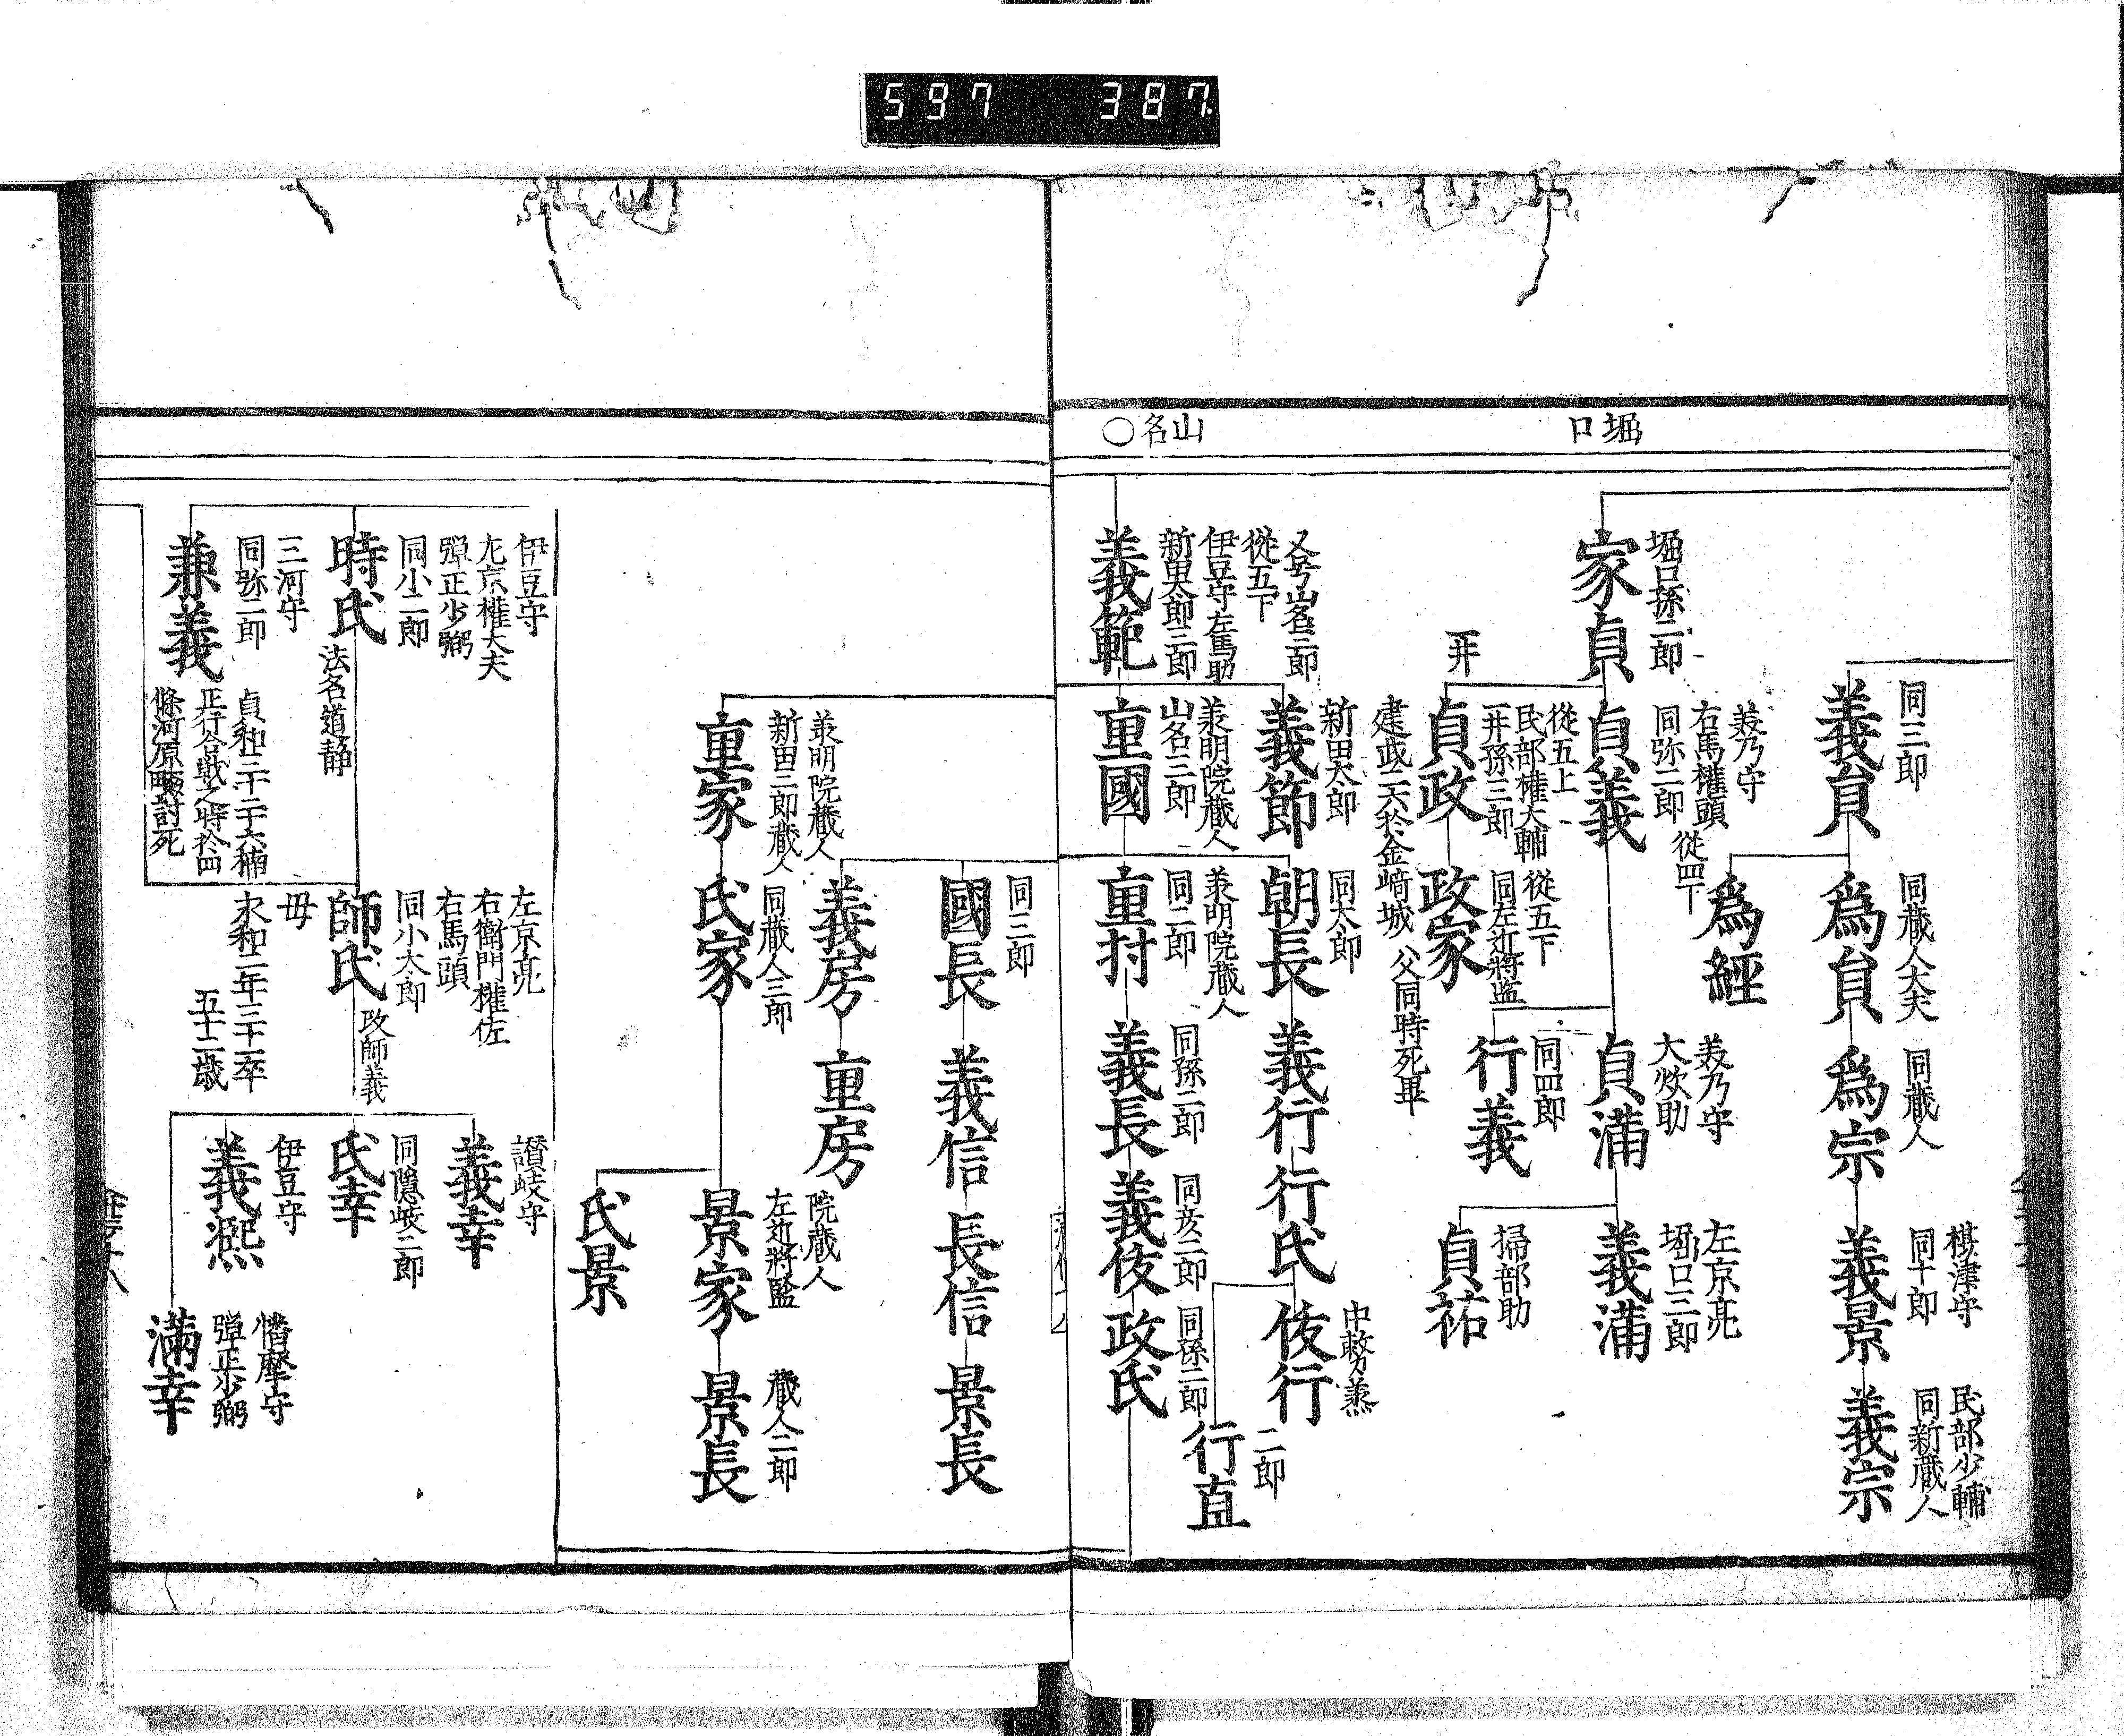 597 387
堀口
山名○
同三郎
義貞
同蔵人大夫
爲貞
爲經
同蔵人
爲宗
同十郎
義景
民部少輔
同新蔵人
義宗
堀口孫二郎
家貞
美乃守
右馬權頭
同弥二郎
從四下
貞義
美乃守
大炊助
貞満
左京亮
堀口三郎
義満
掃部助
貞祐
同四郎
行義
一井
從五上
民部權大輔
一井孫三郎
貞政
從五下
同左近將監
政家
父同時死畢
又号山名三郎
從五下
伊豆守左馬助
新田太郎三郎
義範
新田太郎
義節
同太郎
朝長
義行
行氏
中務丞
俊行
二郎
行直
山名三郎
重國
同二郎
重村
同孫二郎
義長
同彦二郎
義俊
同孫二郎
政氏
同三郎
國長
義信
長信
景長
義房
重房
新田三郎蔵人
重家
同蔵人三郎
氏家
院蔵人
左近將監
景家
蔵人二郎
景長
氏景
伊豆守
左京權大夫
彈正少弼
同小二郎
時氏
法名道静
三河守
同弥二郎
兼義
貞和三十一二十六楠
正行合戦之時於四
條河原畷討死
左京亮
右衛門權佐
右馬頭
同小太郎
師氏
改師義
母
永和二年三十一卒
五十二歳
讃岐守
義幸
同隠岐二郎
氏幸
伊豆守
義凞
播摩守
彈正少弼
満幸